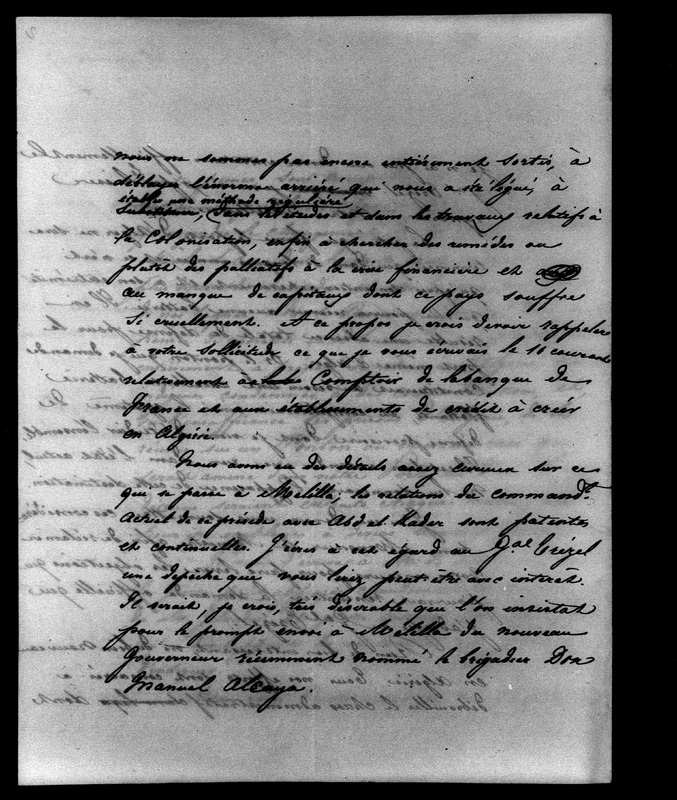 nous ne sommes pas encore entièrement sortis, à
déblayer l'énorme arriéré qui nous a été légué, à
établir une méthode régulière
dans les études et dans les travaux relatifs à
la Colonisation, enfin à chercher des remèdes ou
plutôt des palliatifs à la crise financière et
au manque de capitaux dont ce pays souffre
si cruellement. A ce propos je crois devoir rappeler
à votre sollicitude ce que je vous écrivais le 10 courant
relativement à Comptoir de la banque de
France et aux établissements de crédit à créer
en Algérie.
Nous avons eu des détails assez curieux sur ce
qui se passe à Melilla; les relations du commandt
actuel de ce préside avec Abd el Kader sont patentes
et continuelles. J'écris à cet égard au Gal Trézel
une dépêche que vous lirez peut-être avec intérêt.
Il serait, je crois, très désirable que l'on insistat
pour le prompt envoi à Melilla du nouveau
Gouverneur récemment nommé le brigadier Don
Manuel Alcaya.